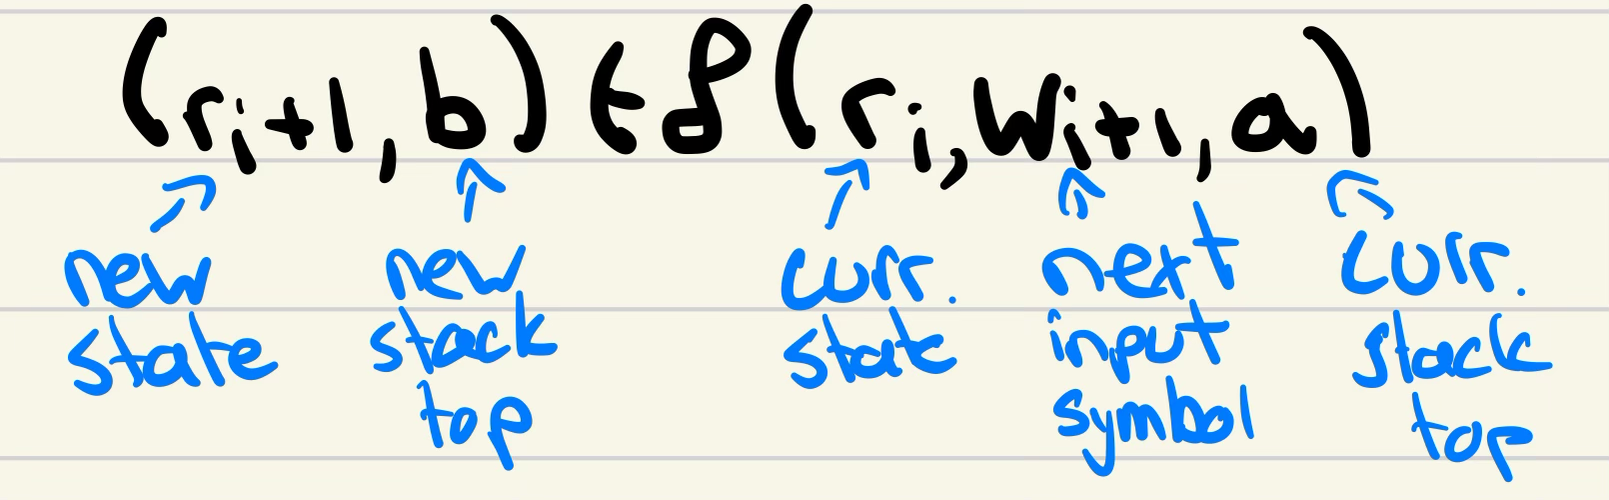 (r_{i+1}, b) ∈ δ(r_i, w_{i+1}, a)
new state
new stack top
curr. state
next input symbol
curr. stack top